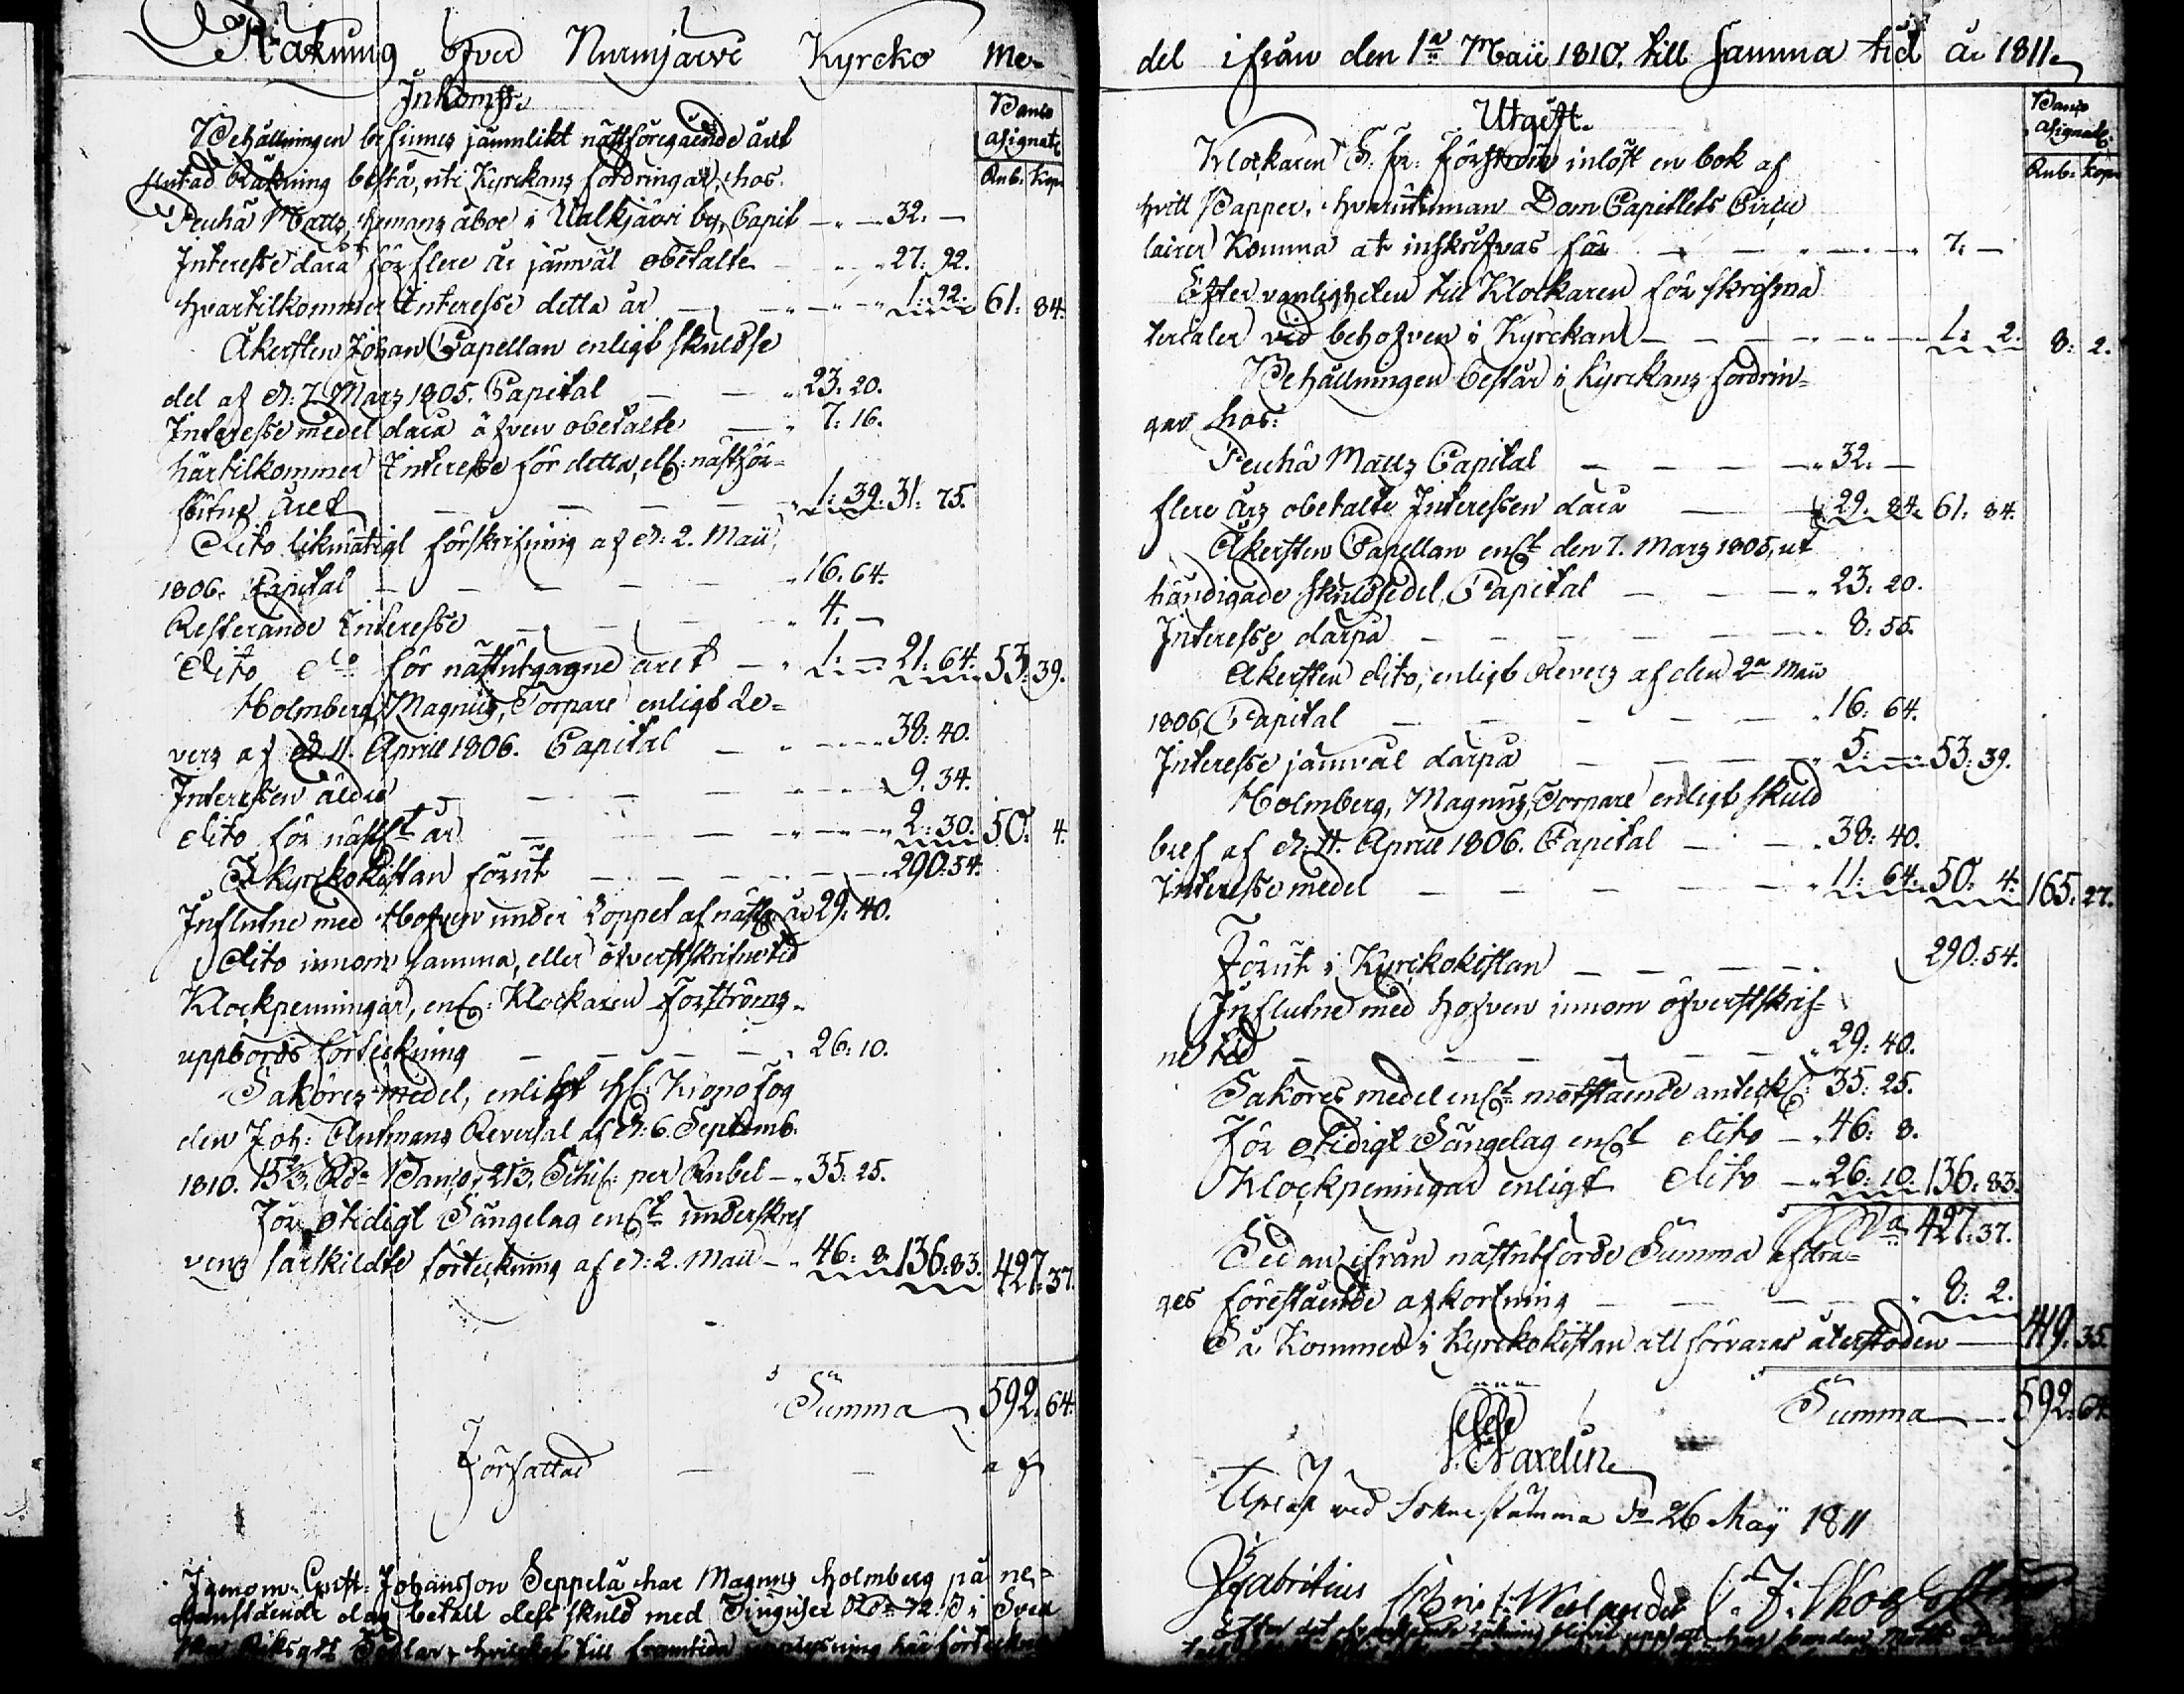 Räkning öfver Nurmjärvi Kyrcko Me-
Inkomst.
Banco Assignat.
Rub. Kop.
Behållningen befinnes jämnlikt nästföregående året
slutad Räkning bestå, uti Kyrckans fordringar, hos.
Peuhå Matts, hemmans åboe i Ualkjärvi by, Capit — 32. —
Interesse dara för flere år jämväl obetalte — 27: 92.
hvartilkommer Interesse detta år — 1: 92. 61: 84.
Åkersten Johan Capellan enligt skuldse
del af d: 7 Mars 1805. Capital — 23: 20.
Interesse medel dara äfven obetalte — 7: 16.
härtilkommer Interesse för detta, ell: nästför-
flutne året — 1: 39. 31: 75.
Dito likmätigt förskrifning af d: 2. Maii,
1806. Capital — 16: 64.
Resterande Interesse — 4: —
Dito do för nästutgagne året — 1: — 21: 64. 53: 39.
Holmberg, Magnus, Torpare enligt Re-
vers af d 11. Aprill 1806. Capital — 38: 40.
Interessen äldre — 9: 34.
dito för nästl. år — 2: 30. 50: 4.
I Kyrckokistan förut — 290: 54.
Influtne med Hofven under loppet af nästl. år 29: 40.
Dito innom samma, eller öfverstskrifne tid
Klockpenningar, enl: Klockaren Forströms
uppbörds förteckning — 26: 10.
Saköres medel, enligt H: Krono fog
den Joh: Ahlmans Reversal af d: 6. Septemb.
1810. 15 2/3. Rd Banco, 21 1/3. Schil: per Rubel — 35: 25.
För otidigt Sängelag enlt underskref
vens särskildte förteckning af d: 2. Maii — 46: 8. 136: 83. 427: 37.
Summa 592: 64.
Författad — — af
Igenom Gust: Johansson Seppelä har Magnus Holmberg på ne-
danstående dag betalt dess skuld med Tinguser Rd 72. S i Sven
ska Riksgts Sedlar, hvilcket till framtida
del ifrån den 1a Maii 1810. till samma tid år 1811.
Utgift.
Banco Assignat.
Rub. Kop.
Klockaren Forström inlöst en bok af
hvitt Papper, hvaruti man Dom Capitlets Circu
lairer komma at inskrifvas för — 7: —
Efter vanligheten till Klockaren för skrifma
terialer vid behofven i Kyrckan — 1: 2. 8: 2.
Behållningen består i Kyrckans fordrin-
gar hos:
Peuhå Matts Capital — 32. —
flere års obetalte Interessen dara — 29: 84. 61: 84.
Åkersten Capellan enlt den 7. Mars 1805, ut
händigade skuldsedel, Capital — 23: 20.
Interesse därpå — 8: 55.
Åkersten dito, enligt Revers af den 2a Maii
1806, Capital — 16: 64.
Interesse jämväl därpå — 5: — 53: 39.
Holmberg, Magnus, Torpare enligt skuld
bref af d: 11. Aprill 1806. Capital — 38: 40.
Interesse medel — 11: 64. 50: 4. 165: 27.
Förut i Kyrckokistan — 290: 54.
Influtne med Hofven innom öfverstskrif-
ne tid — 29: 40.
Saköres medel enlt motstående anteckl: 35: 25.
För otidigt Sängelag enlt dito — 46: 8.
Klockpenningar enligt dito — 26: 10. 136: 83.
Sa 427: 37.
Sedan ifrån nästutförde Summa afdra-
ges förestående afkortning — 8: 2.
Så kommer i Kyrckokistan att förvaras återstoden — 419: 35.
Summa 592: 64.
Upläst vid Soknestämma d 26 Maij 1811
Fabritius